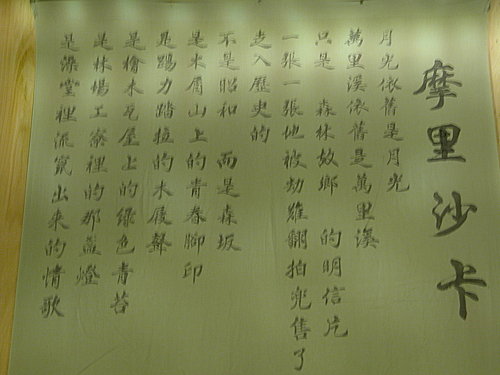 摩里沙卡
月光依舊是月光
萬里溪依舊是萬里溪
只是 森林故鄉 的明信片
一張一張地被劫雖翻拍兜售了
走入歷史的
不是昭和 而是森坂
是木屑山上的青春腳印
是踢力踏拉的木屐聲
是檜木瓦屋上的綠色青苔
是林場工寮裡的那盞燈
是澡堂裡流竄出來的情歌